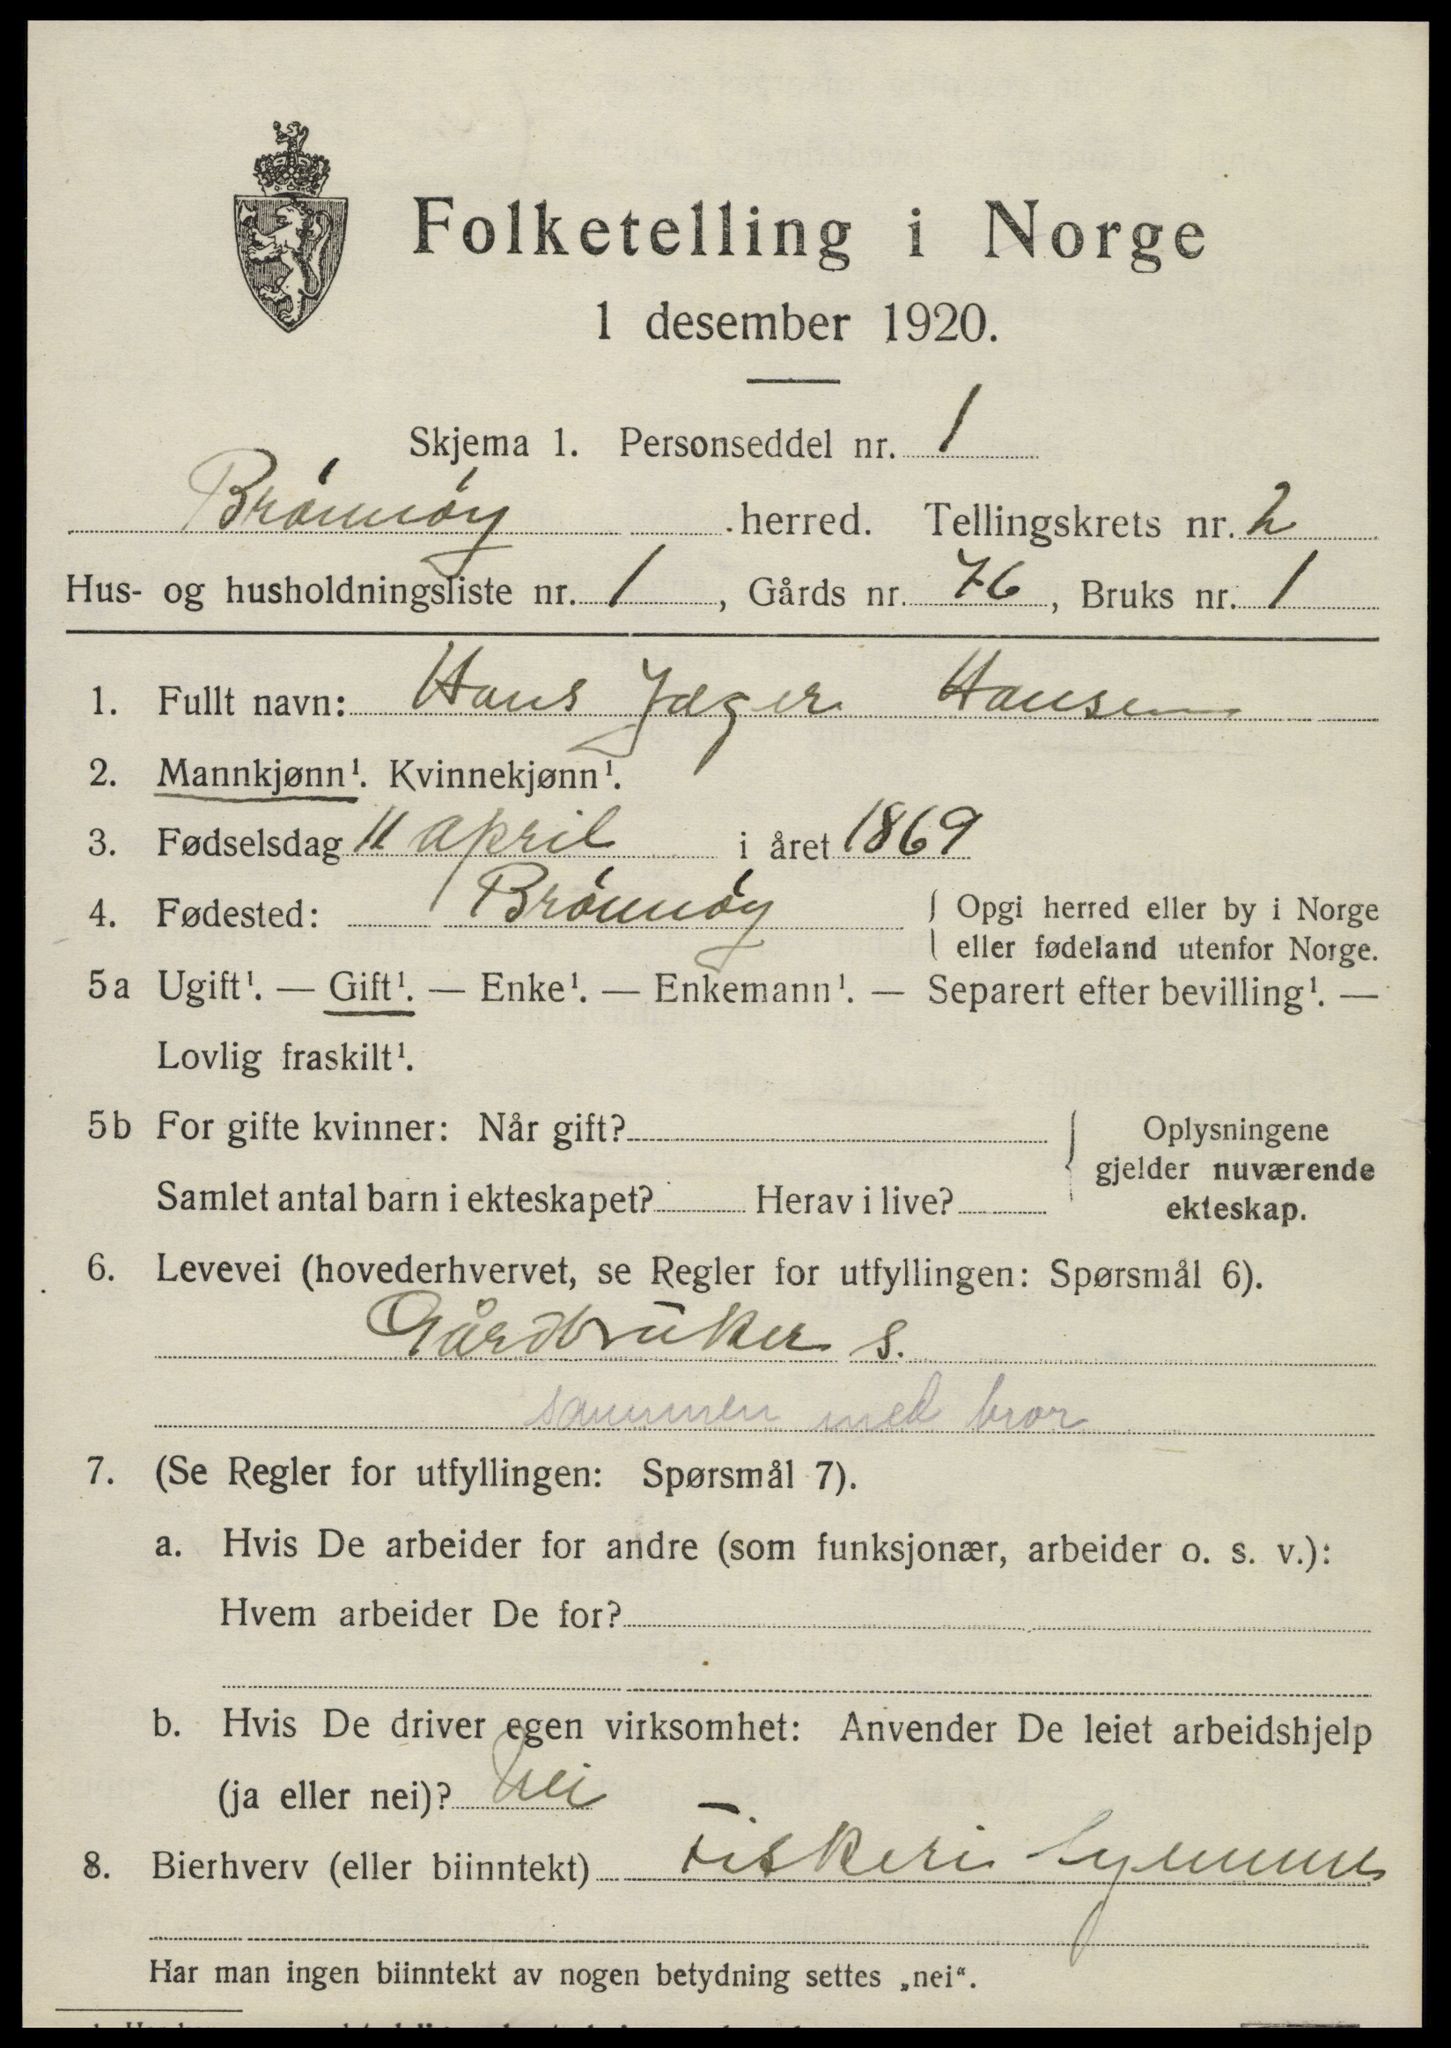 Folketelling i Norge
1 desember 1920.
Skjema 1. Personseddel nr. 1
Brónnóy herred. Tellingskrets nr. 2
Hus- og husholdningsliste nr. 1, Gårds nr. 76, Bruks nr. 1
1. Fullt navn: Hans Jæger Hansen
2. Mannkjønn¹. Kvinnekjønn¹.
3. Fødselsdag 11 april i året 1869
4. Fødested: Brónnóy { Opgi herred eller by i Norge
eller fødeland utenfor Norge.
5a Ugift¹. — Gift¹. — Enke¹. — Enkemann¹. — Separert efter bevilling¹. —
Lovlig fraskilt¹.
5b For gifte kvinner: Når gift? { Oplysningene
gjelder nuværende
Samlet antal barn i ekteskapet? Herav i live? ekteskap.
6. Levevei (hovederhvervet, se Regler for utfyllingen: Spørsmål 6).
Gårdbruker s.
sammen med bror
7. (Se Regler for utfyllingen: Spørsmål 7).
a. Hvis De arbeider for andre (som funksjonær, arbeider o. s. v.):
Hvem arbeider De for?
b. Hvis De driver egen virksomhet: Anvender De leiet arbeidshjelp
(ja eller nei)? Nei
8. Bierhverv (eller biinntekt) Fiskeri
Har man ingen biinntekt av nogen betydning settes „nei“.